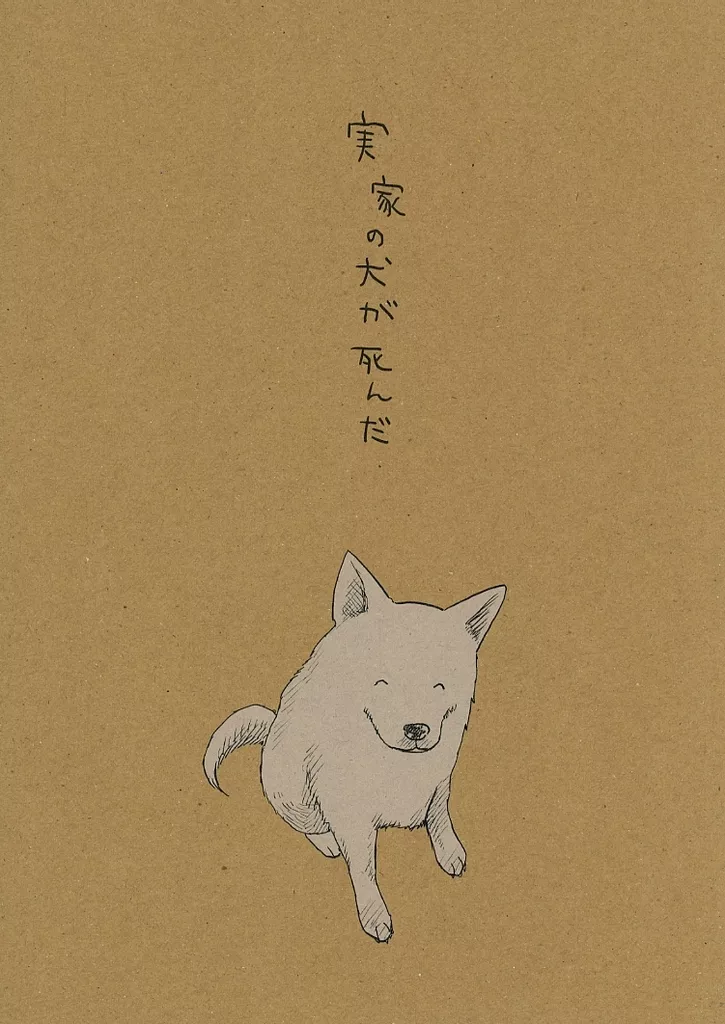 実家の犬が死んだ